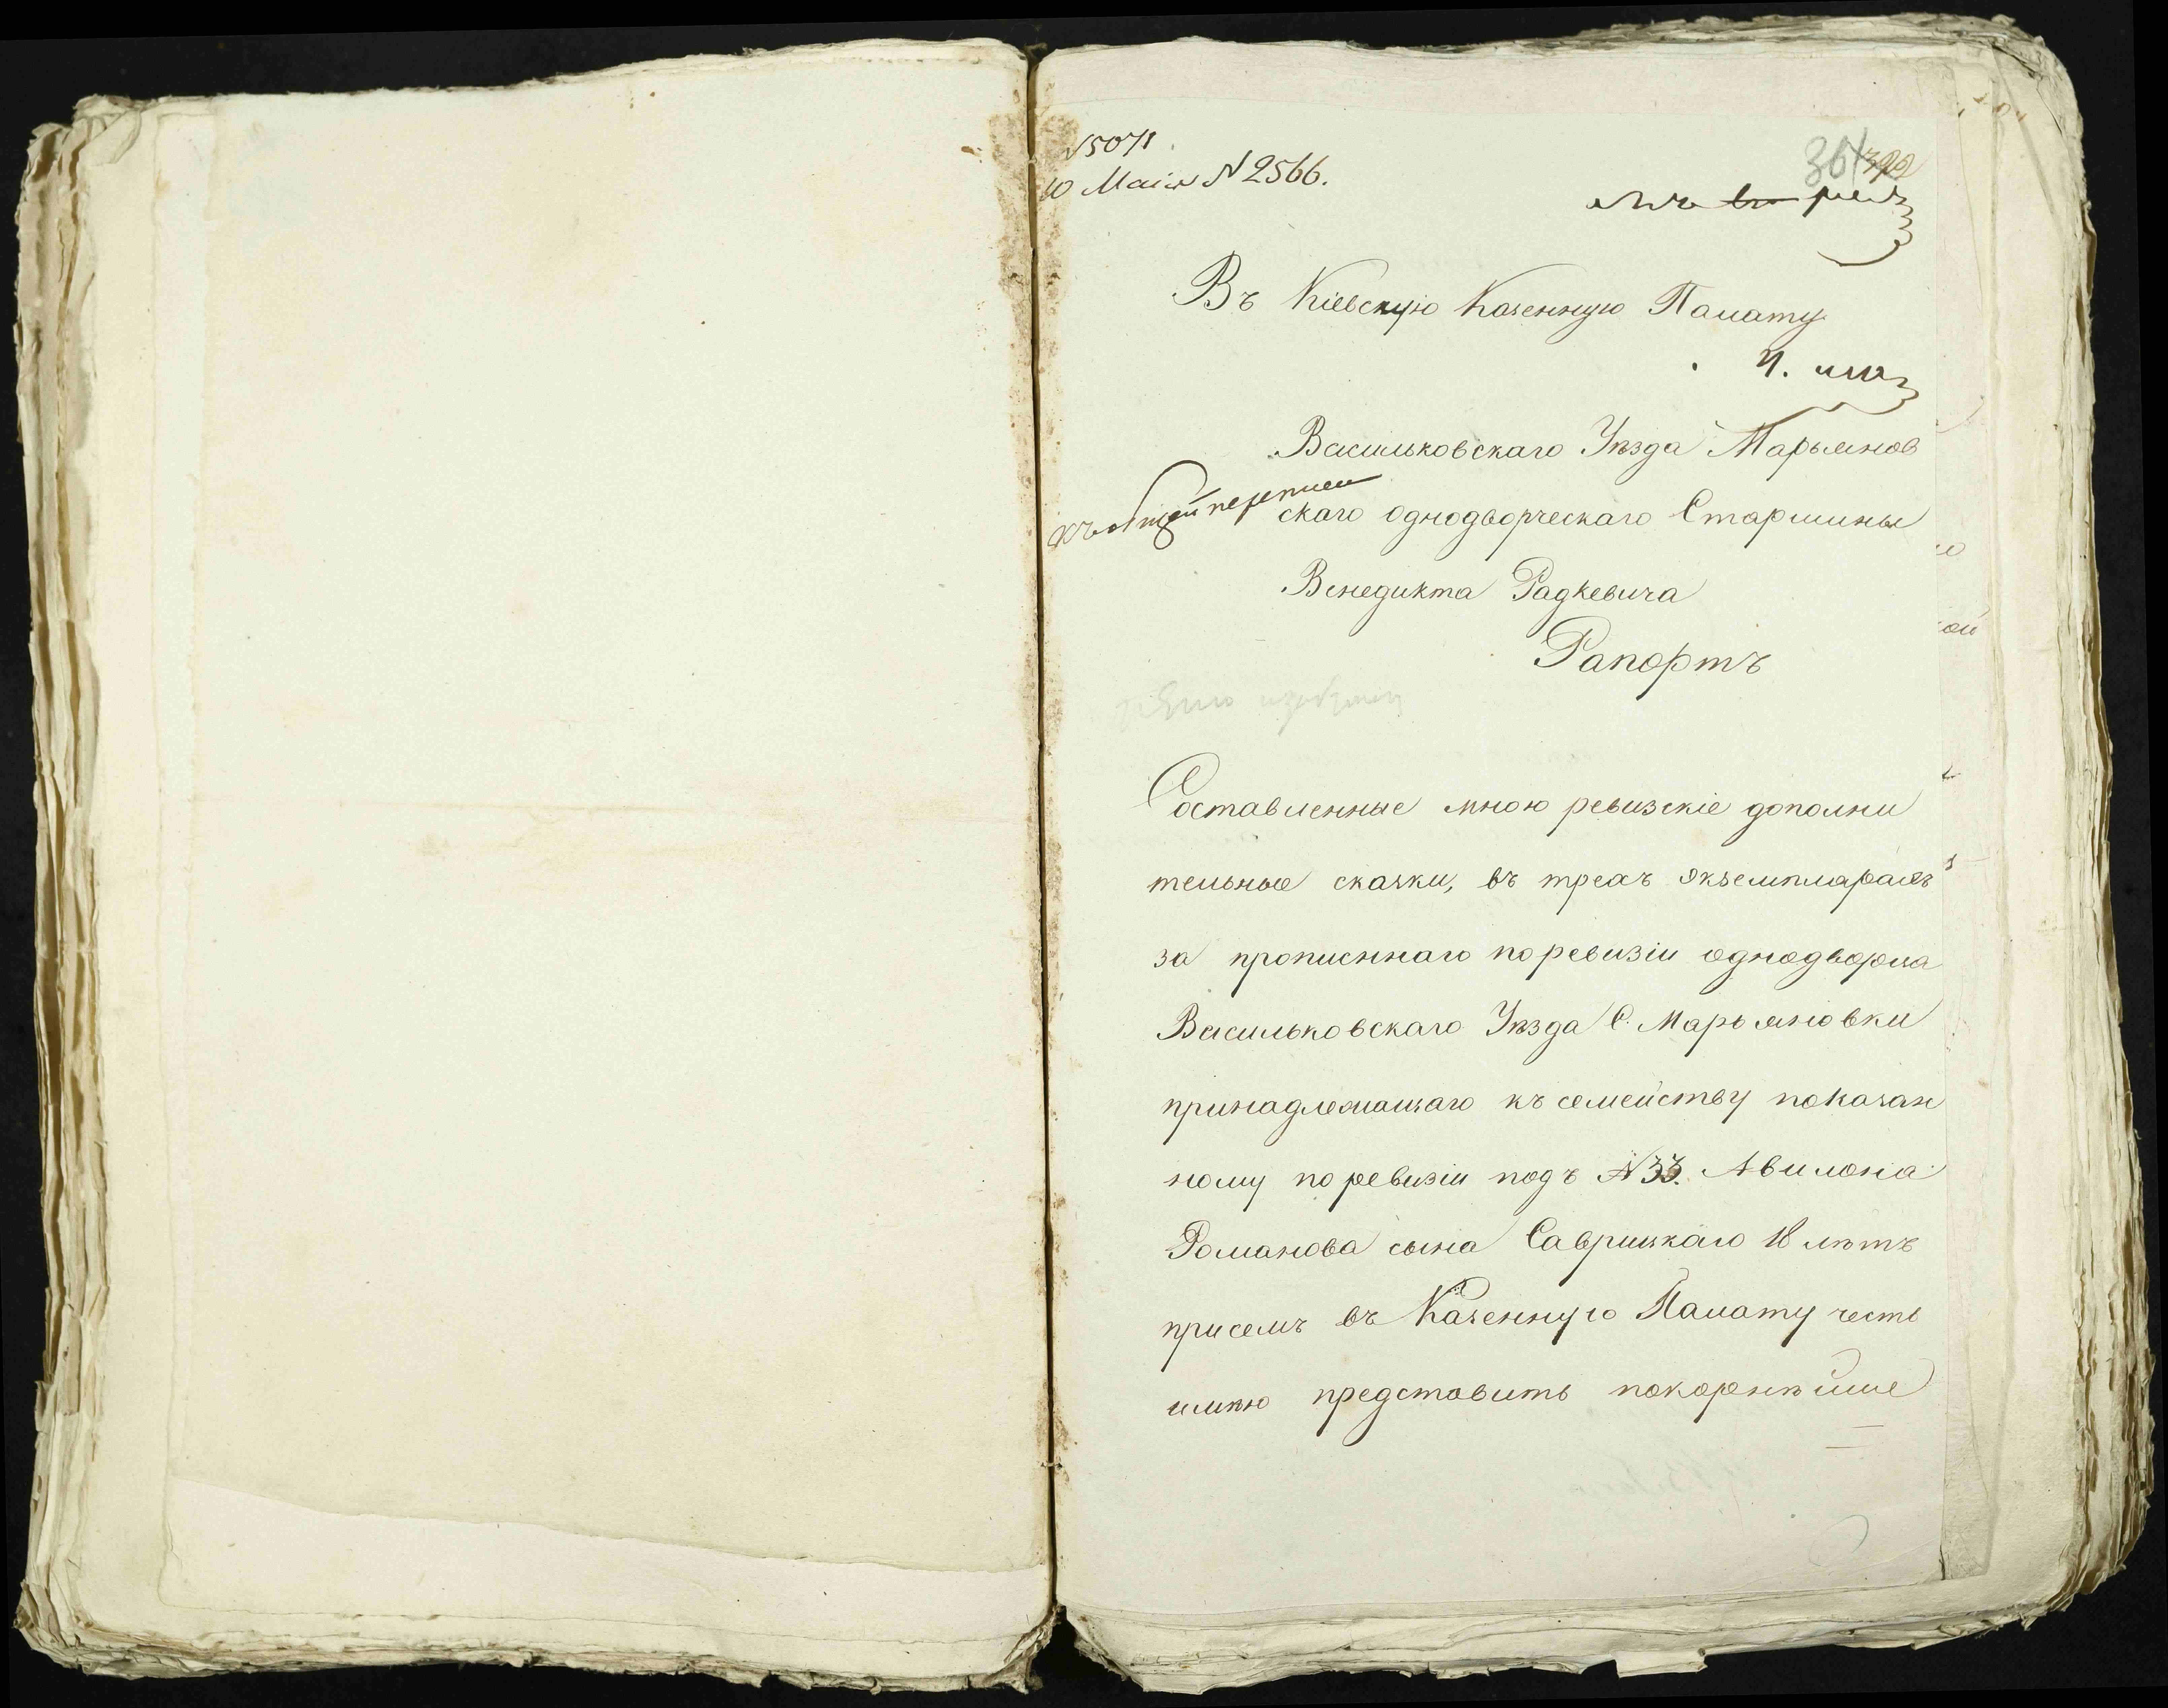 10 Маія № 2566.
Въ Кіевскую Казенную Палату
Васильковскаго Уѣзда Марьянов
скаго однодворческаго Старшины
къ общей переписи
Венедикта Радкевича
Рапортъ
Составленные мною ревизскіе дополни
тельные сказки, въ трехъ экземплярахъ
за прописннаго по ревизіи однодворца
Васильковскаго Уѣзда С. Марьяновки
принадлежащаго къ семейству показан
ному по ревизіи подъ №33. Авилона
Романова сына Саврицкаго 18 лѣтъ
при семъ въ Казенную Палату честь
имѣю представить покорнѣйше